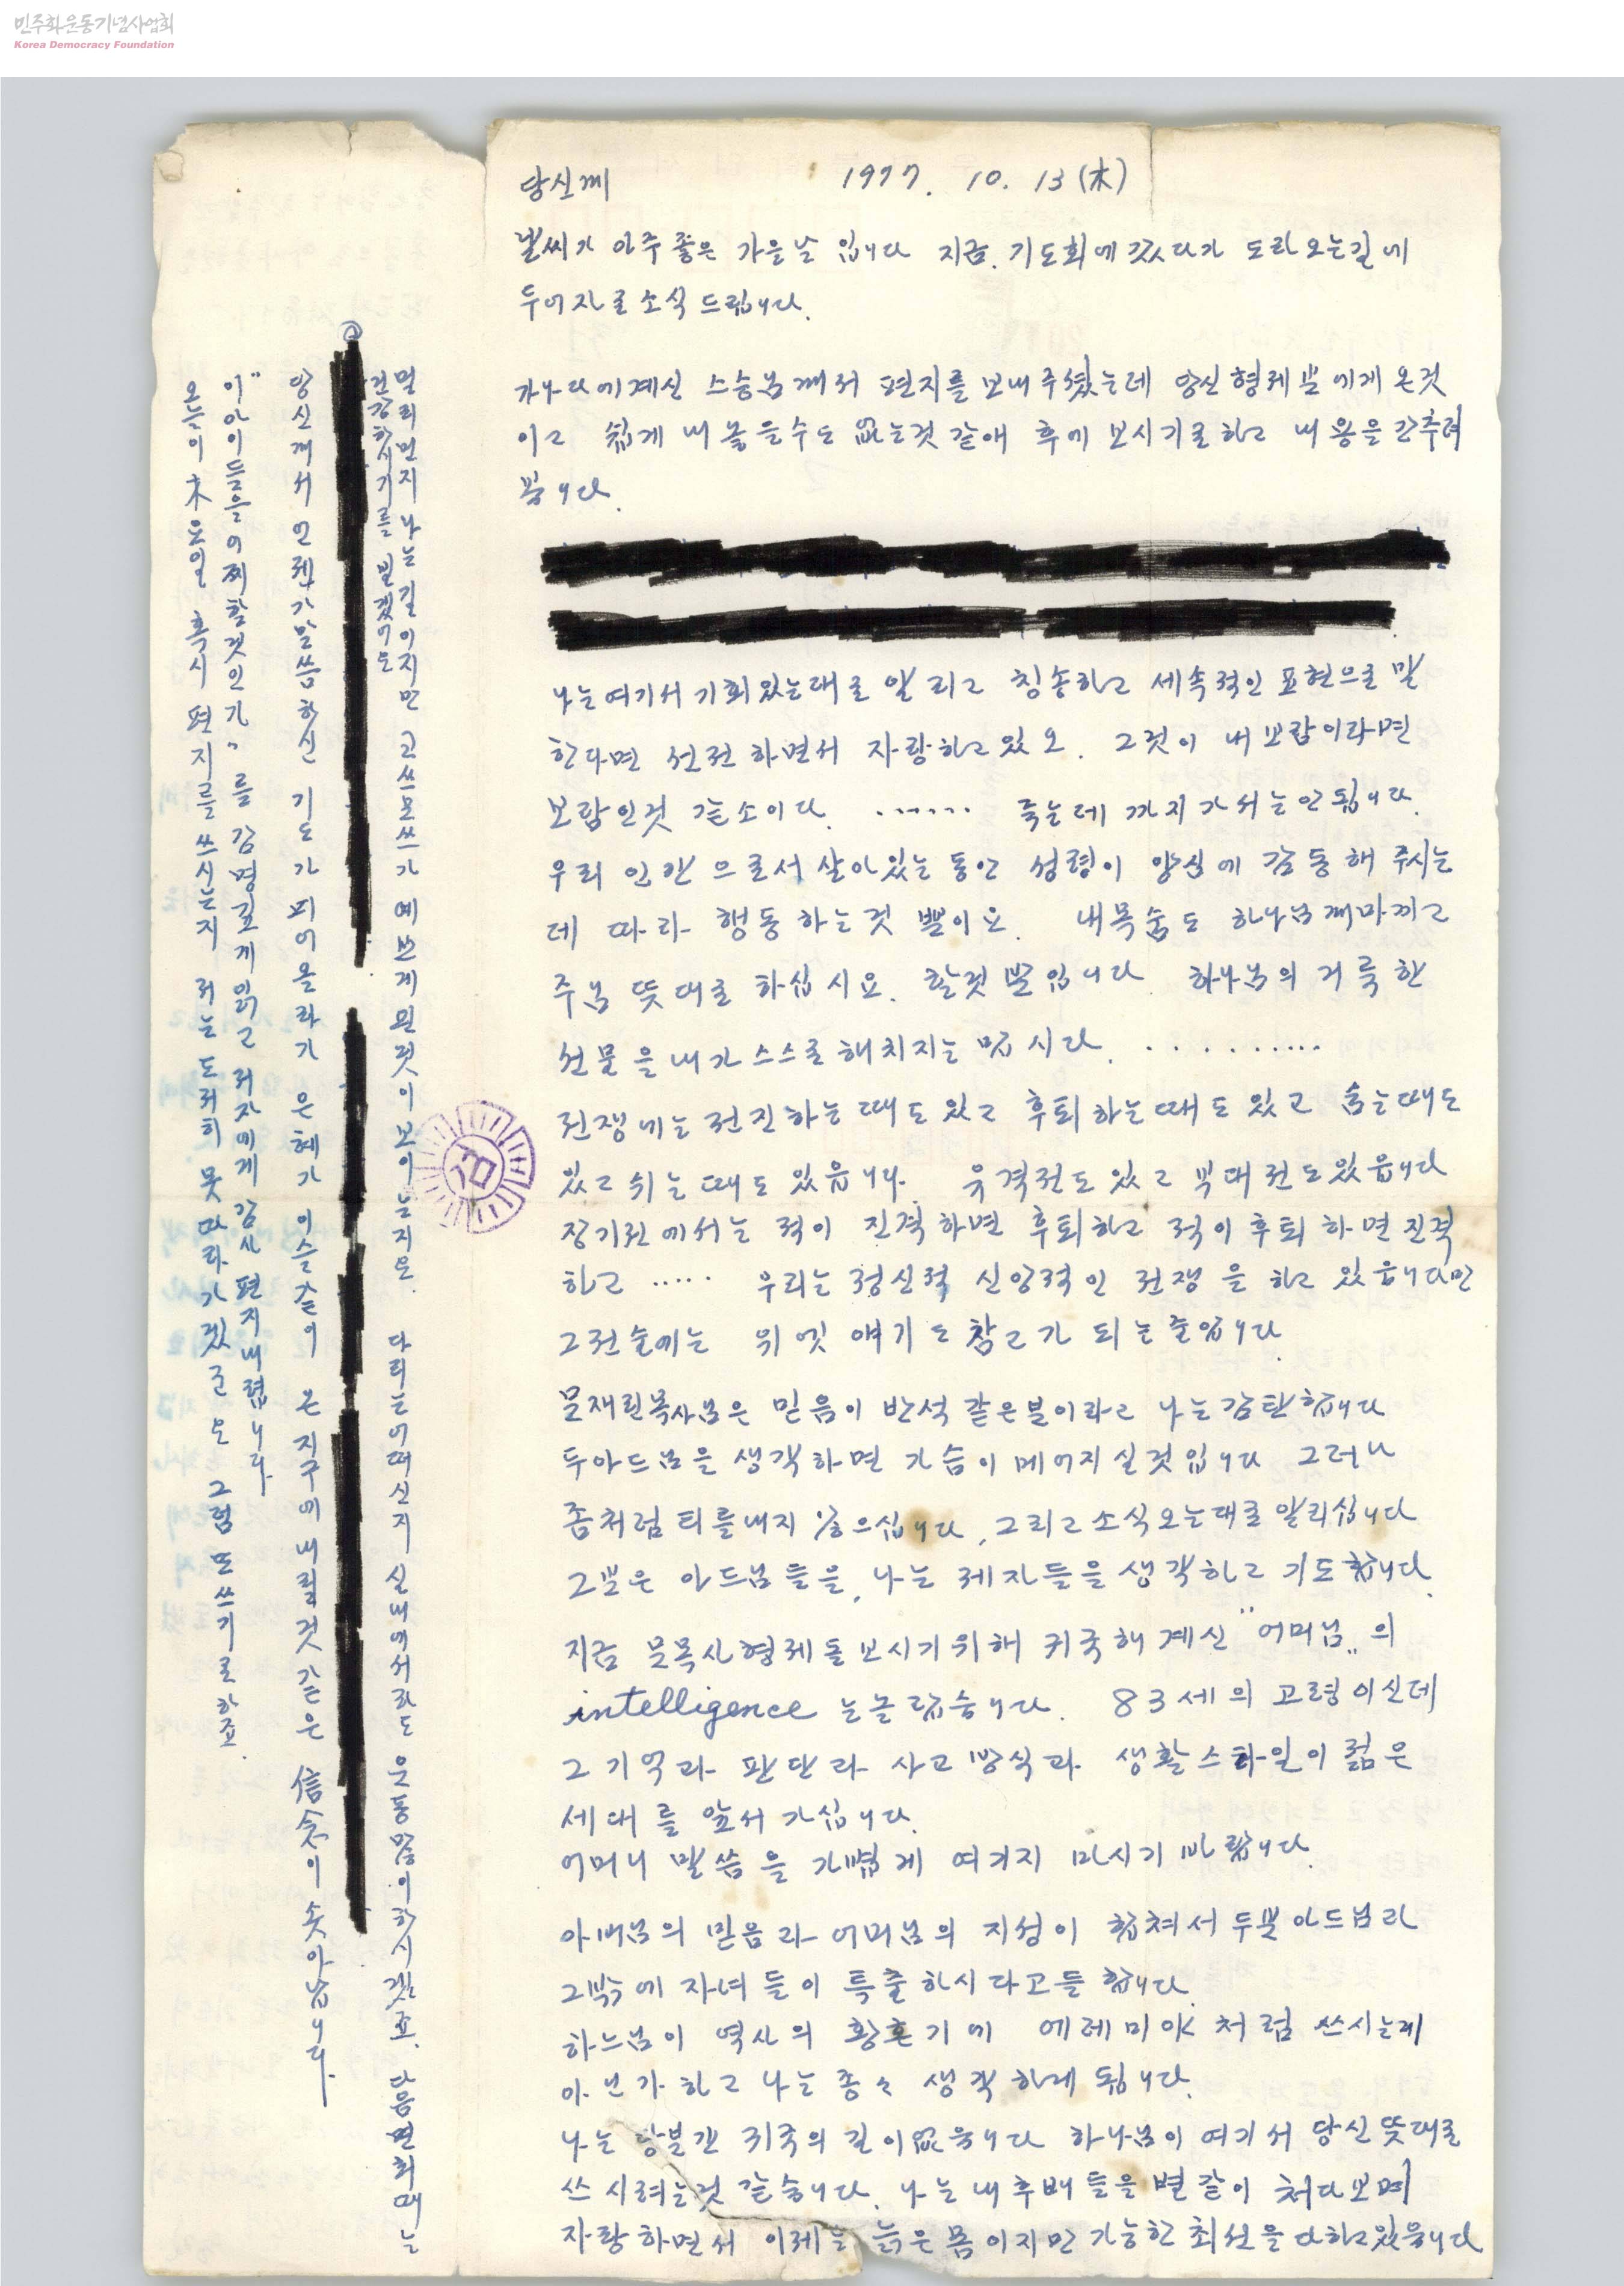 민주화운동기념사업회
Korea Democracy Foundation
당신께 1977. 10. 13 (木)
날씨가 아주 좋은 가을날 입니다 지금. 기도회에 갔다가 도라오는길에
두어자로 소식 드립니다.
카나다에계신 스승님께서 편지를 보내주셨는데 당신형제분에게 온것
이고 쉽게 내놓을수도 없는것 같애 후에 보시기로하고 내용을 간추려
봅니다.
나는여기서 기회있는대로 알리고 칭송하고 세속적인 표현으로 말
한다면 선전하면서 자랑하고있오. 그것이 내보람이라면
보람인것 같소이다. ...... 죽는데 까지가서는안됩니다.
우리 인간으로서 살아있는 동안 성령이 양심에 감동해 주시는
데 따라 행동하는것 뿐이요. 내목숨도 하나님께마끼고
주님 뜻대로 하십시요. 할것 뿐입니다. 하나님의 거룩한
선물을내가스스로해치지는 맙시다. ..........
전쟁에는 전진하는때도있고 후퇴하는때도있고 숨는때도
있고 쉬는때도 있읍니다. 유격전도있고 부대전도있읍니다
장기전에서는 적이 진격하면 후퇴하고 적이후퇴하면진격
하고 ..... 우리는정신적 신앙적인 전쟁을 하고 있읍니다만
그전술에는 위엣 얘기도참고가 되는줄압니다.
문재린목사님은 믿음이 반석같은분이라고 나는감탄합니다
두아드님을 생각하면 가슴이메어지실것입니다 그러나
좀처럼 티를내지 않으십니다, 그리고소식오는대로알리십니다
그분은 아드님들을, 나는 제자들을생각하고 기도합니다.
지금 문목사형제를보시기위해 귀국해계신 "어머님"의
intelligence 는놀랍습니다. 83세의 고령이신데
그기억과 판단과 사고방식과 생활스타일이 젊은
세대를 앞서가십니다.
어머니 말씀을 가볍게 여기지 마시기 바랍니다.
아버님의 믿음과 어머님의 지성이 합쳐서 두분아드님과
그밖에자녀들이 특출하시다고들 합니다.
하느님이 역사의 황혼기에 예레미야 처럼 쓰시는게
아닌가하고 나는종々 생각하게됩니다.
나는 당분간 귀국의 길이없읍니다 하나님이 여기서 당신뜻대로
쓰시려는것 같습니다. 나는내후배들을 별같이 쳐다보며
자랑하면서 이제는 늙은몸이지만 가능한최선을다하고있읍니다
멀리먼지 나는길이지만 고쓰모쓰가 예쁘게핀것이 보이는지요. 다리는어떠신지 실내에서라도 운동많이하시겠죠. 다음면회때는
건강하시기를 빌겠어요
당신께서 언젠가말씀하신 기도가피어올라가 은혜가 이슬같이 온지구에내릴것같은 信念이 솟아납니다.
"이아이들을어찌할것인가"를 감명깊게읽고 저자에게 감사편지내렵니다.
오늘이木요일 혹시 편지를쓰시는지 저는도저히못따라가겠군요 그럼 또쓰기로하죠.
검